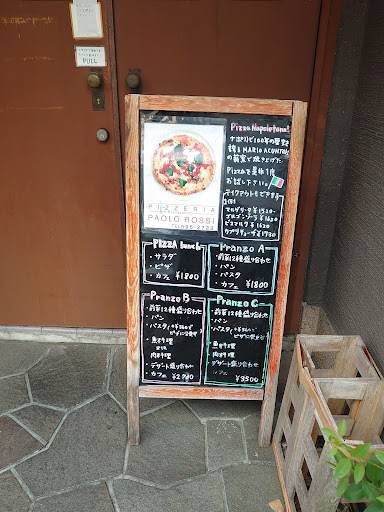 PULL
Pizza Napoletana!
ナポリで100年の歴史を
誇るMARIO ACUNTOの
薪窯で焼き上げた
Pizzaを是非1度
お試し下さい。
テイクアウトもできます
PIZZERIA
PAOLO ROSSI
マルゲリータ ¥1520
ゴルゴンゾーラ ¥1620
ビスマルク ¥1620
¥1730
PIZZA Lunch
・サラダ
・ピザ
・カフェ ¥1800
Pranzo A
・前菜12種盛り合わせ
・パン
・パスタ
・カフェ ¥1800
Pranzo B
・前菜12種盛り合わせ
・パン
・パスタ
・魚料理
又は
肉料理
・デザート盛り合わせ
・カフェ
Pranzo C
・前菜12種盛り合わせ
・パン
・パスタ
・魚料理
・肉料理
・デザート盛り合わせ
・カフェ
¥3500